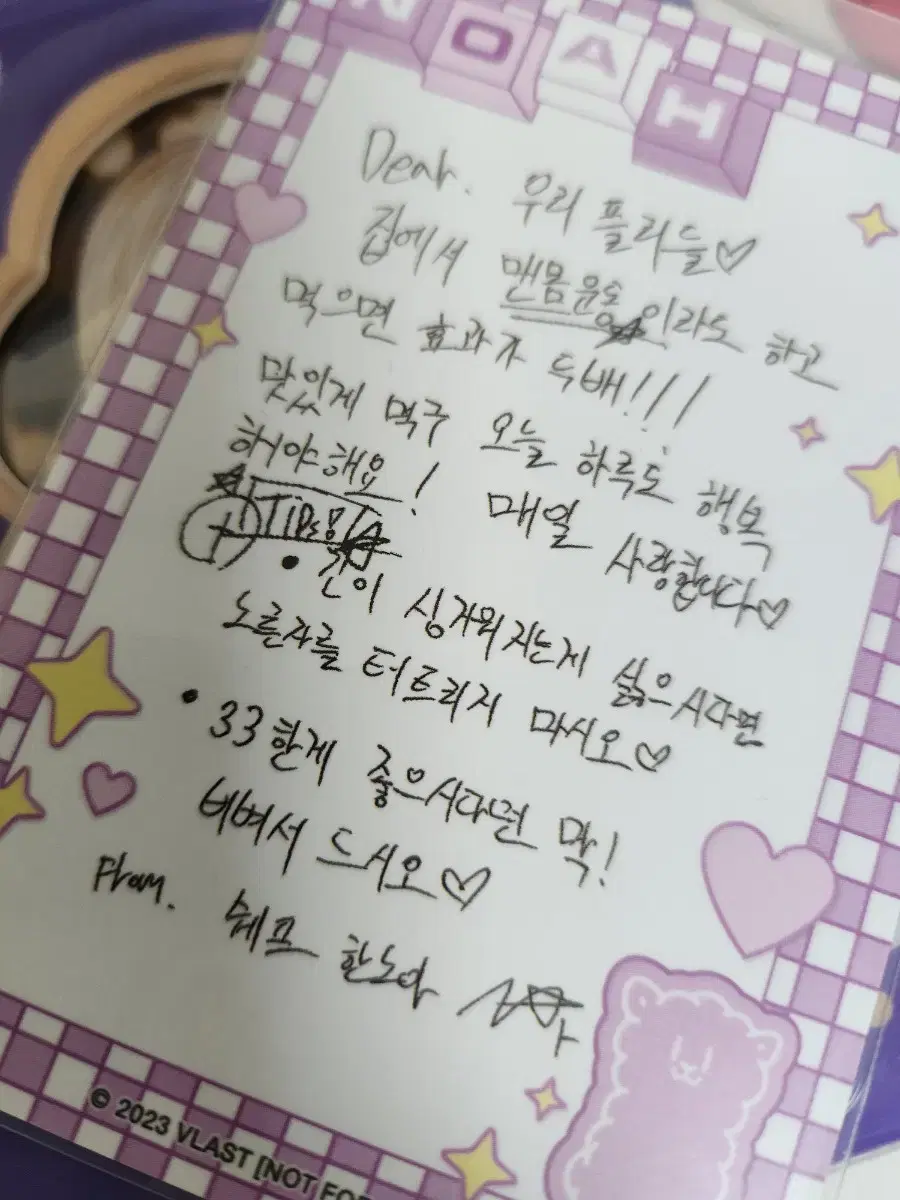 NOAH
Dear. 우리 플리들♡
집에서 맨몸운동이라도 하고
먹으면 효과가 두배!!!
맛있게 먹구 오늘 하루도 행복
해야해요! 매일 사랑합니다♡
+ Tips!
• 간이 싱거워지는게 싫으시다면
노른자를 터트리지 마시오♡
• 33한게 좋으시다면 막!
비벼서 드시오♡
From. 쉐프 한노아
© 2023 VLAST [NOT FOR